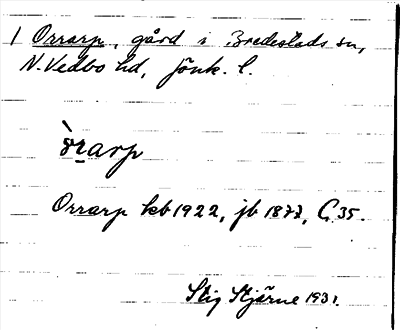 1 Orrarp, gård i Bredestads sn,
N. Vedbo hd, Jönk. l.
òrarp
Orrarp kb 1922, jb 1877, G. 35.
Stig Stjärne 1931.